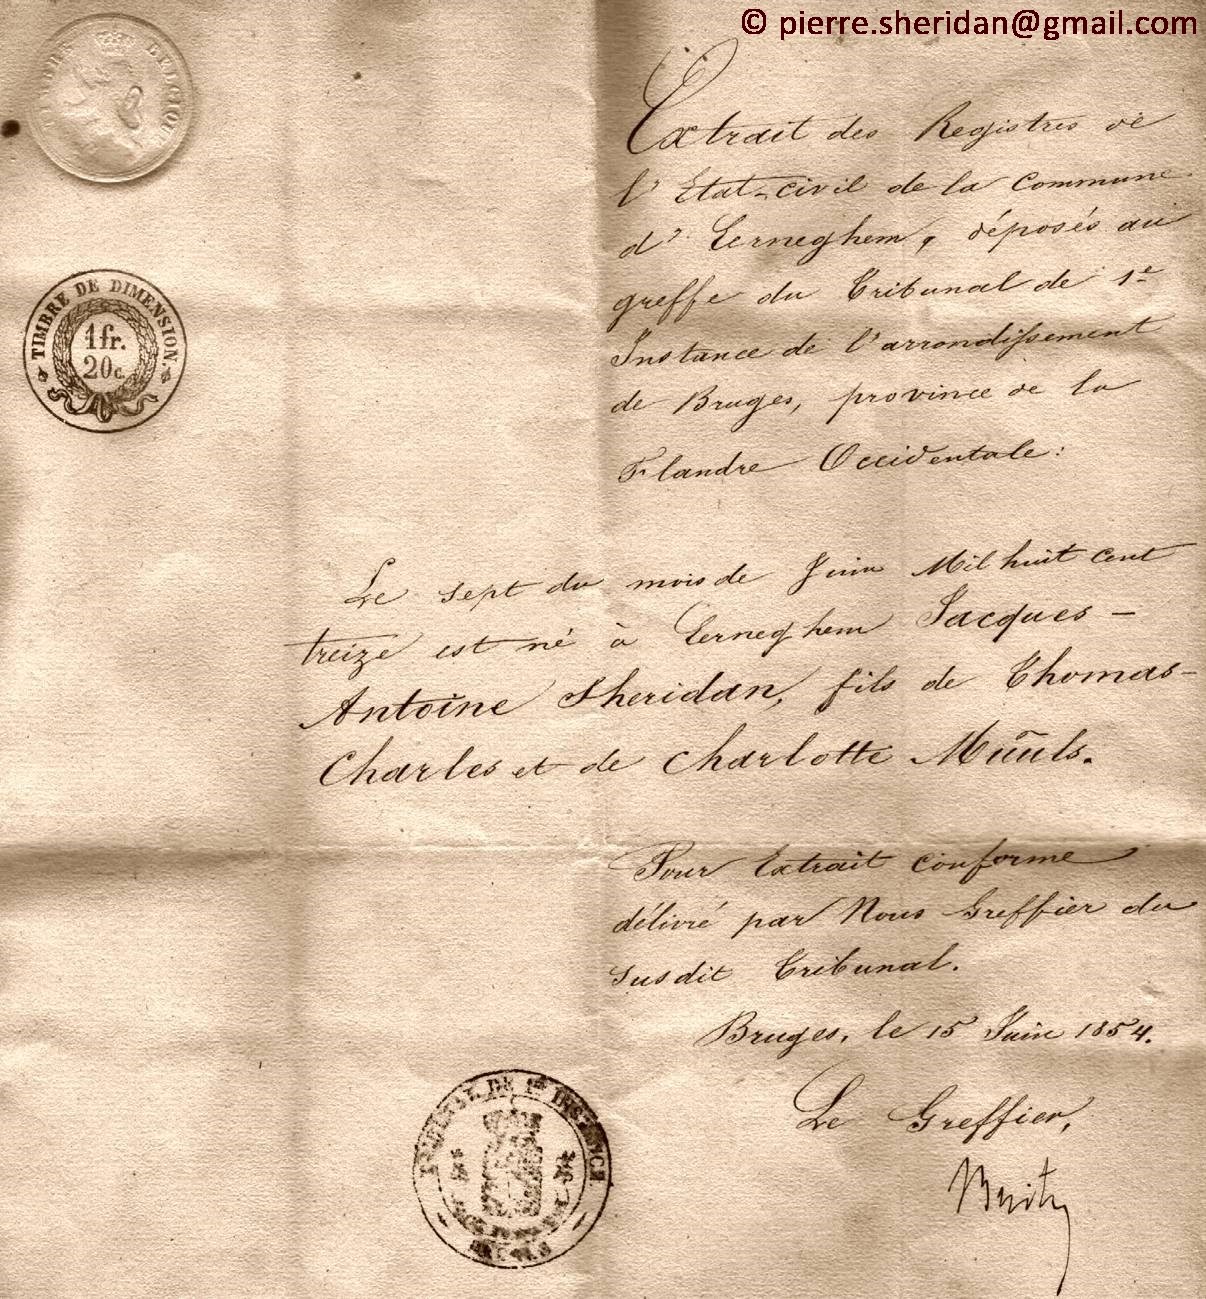 © pierre.sheridan@gmail.com
BELGIQUE
TIMBRE DE DIMENSION.
1fr.
20c.
Extrait des Registres de
l'Etat-civil de la Commune
d' Eerneghem, déposés au
greffe du Tribunal de 1re
Instance de l'arrondissement
de Bruges, province de la
Flandre Occidentale:
Le sept du mois de Juin Mil huit cent
treize est né à Eerneghem Jacques-
Antoine Sheridan, fils de Thomas-
Charles et de Charlotte Muüls.
Pour Extrait conforme
délivré par Nous Greffier du
susdit Tribunal.
Bruges, le 15 Juin 1854.
Le Greffier,
TRIBUNAL DE 1re INSTANCE
BRUGES